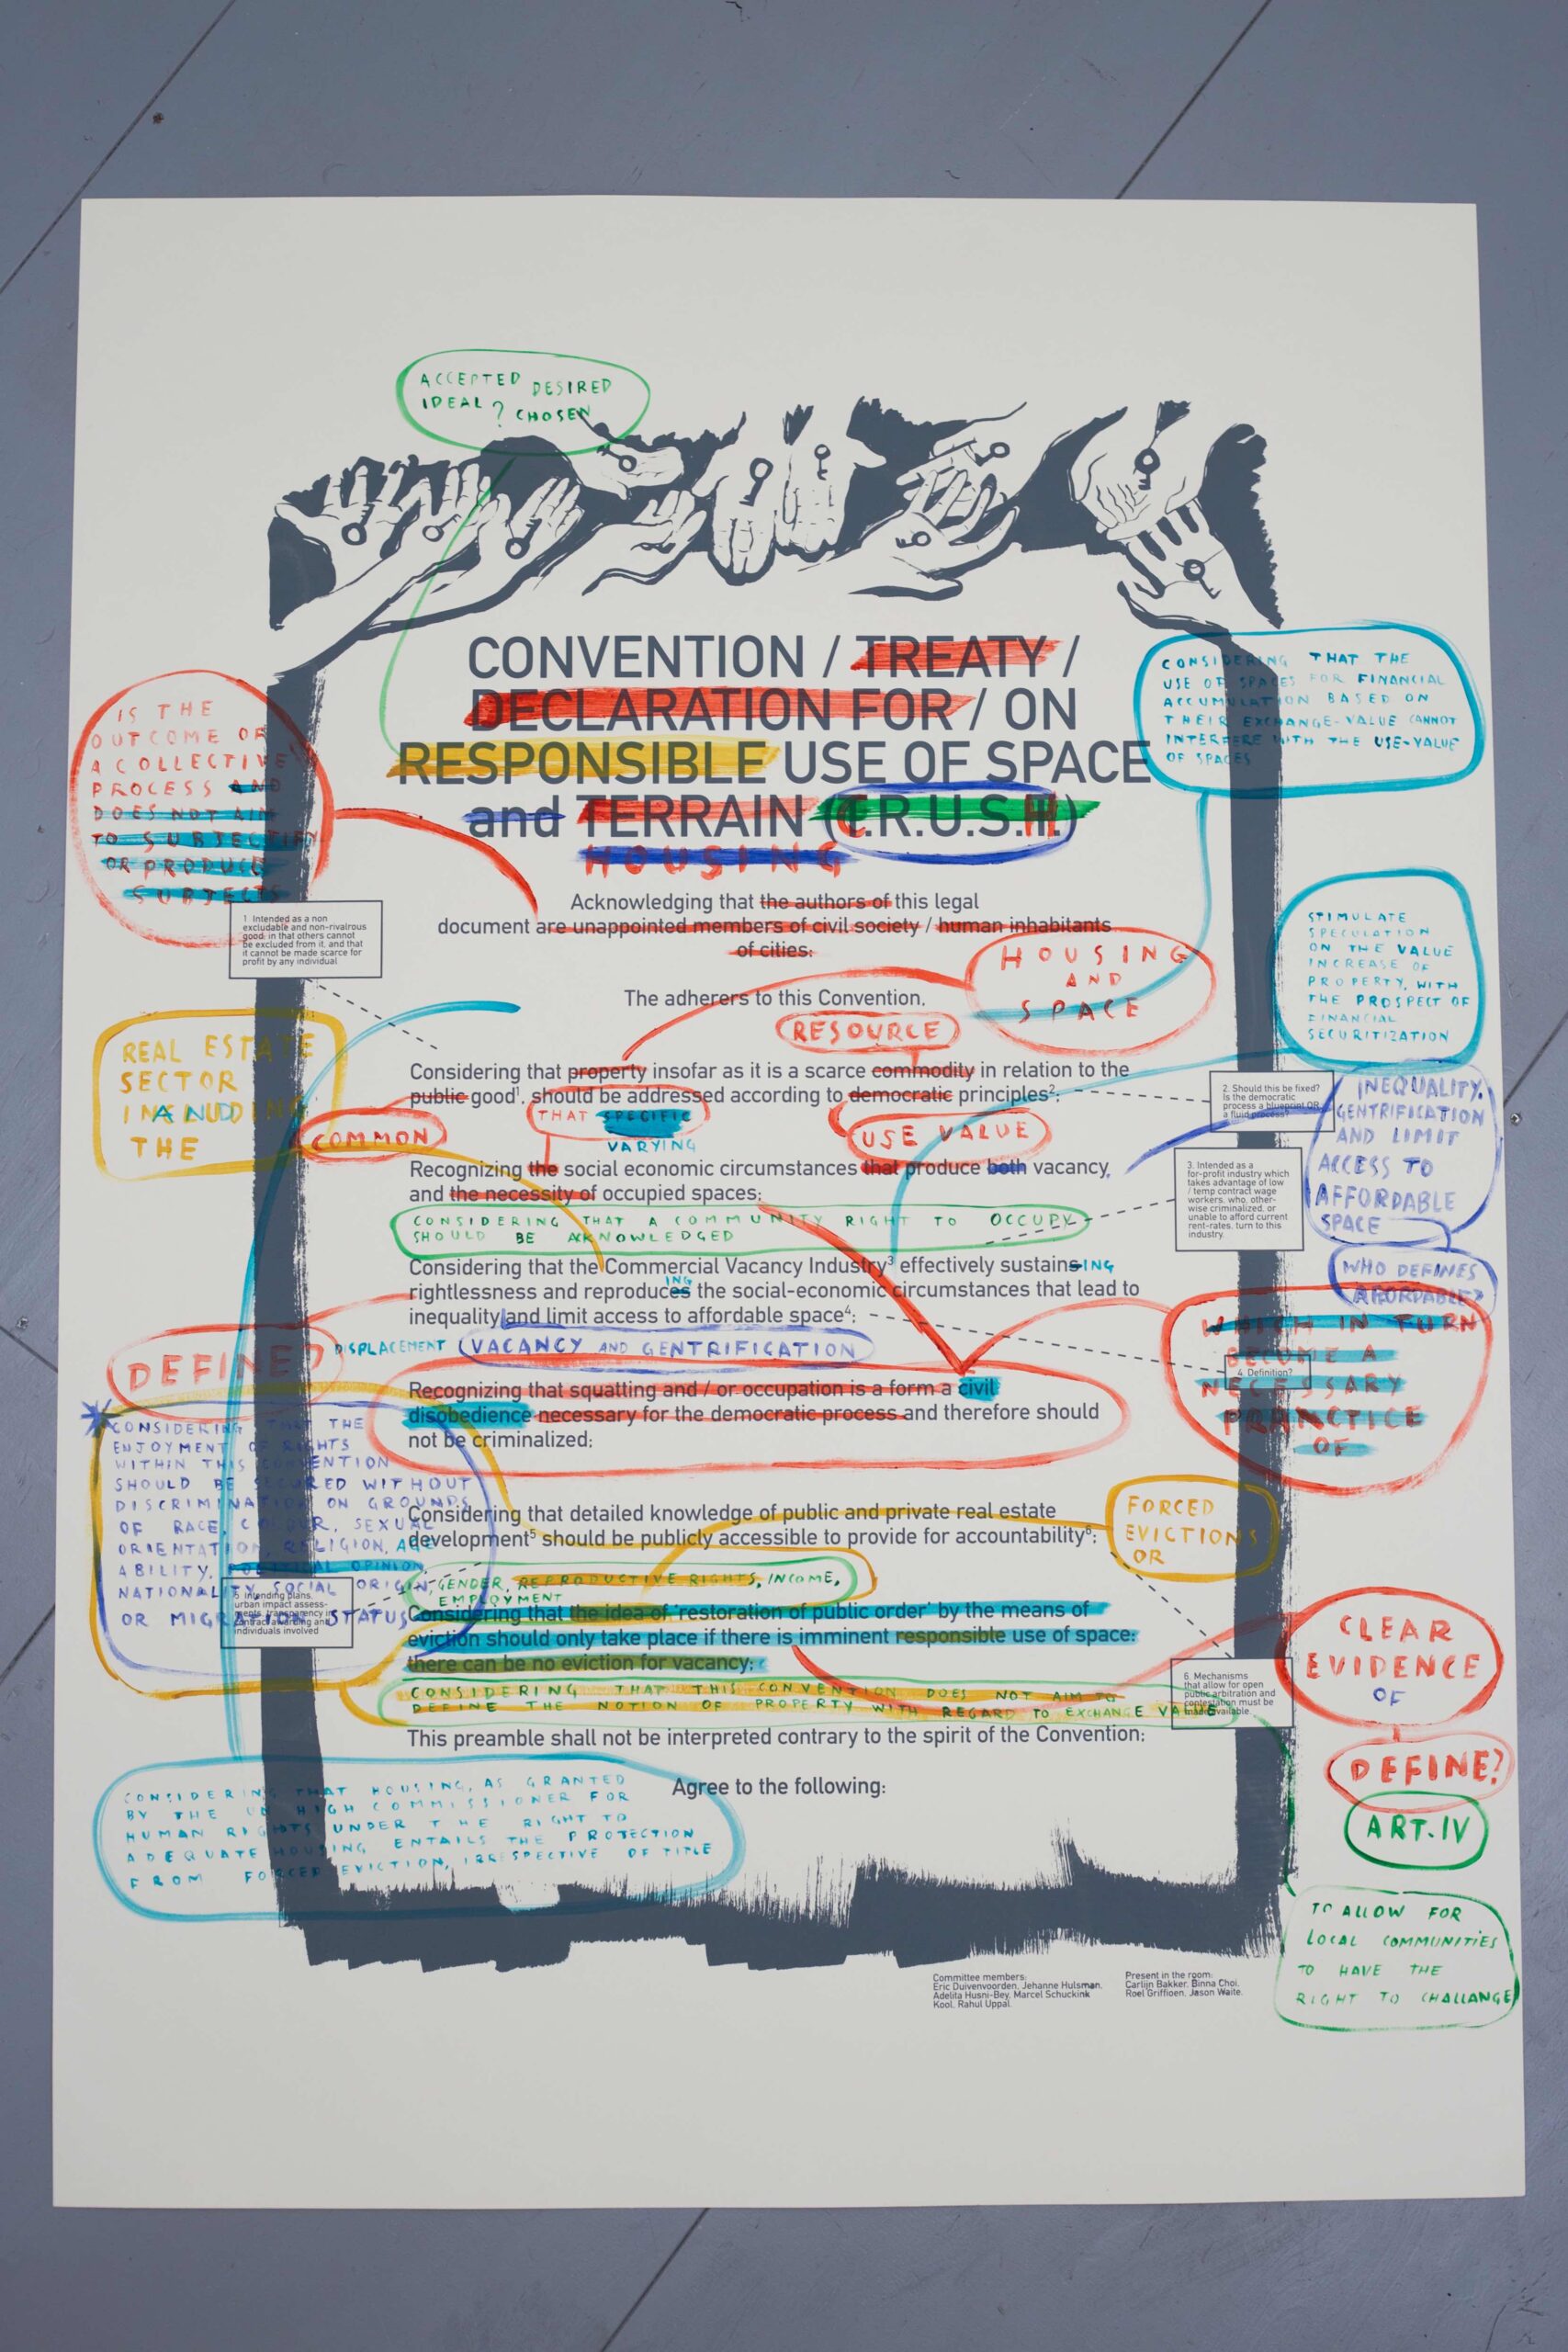 ACCEPTED DESIRED
IDEAL? CHOSEN
CONVENTION / TREATY /
DECLARATION FOR / ON
RESPONSIBLE USE OF SPACE
and TERRAIN (T.R.U.S.T.)
HOUSING
H
IS THE
OUTCOME OF
A COLLECTIVE
PROCESS AND
DOES NOT AIM
TO SUBJECTIFY
OR PRODUCE
SUBJECTS
CONSIDERING THAT THE
USE OF SPACES FOR FINANCIAL
ACCUMULATION BASED ON
THEIR EXCHANGE-VALUE CANNOT
INTERFERE WITH THE USE-VALUE
OF SPACES
Acknowledging that the authors of this legal
document are unappointed members of civil society / human inhabitants
of cities:
1 Intended as a non
excludable and non-rivalrous
good: in that others cannot
be excluded from it, and that
it cannot be made scarce for
profit by any individual
HOUSING
AND
SPACE
STIMULATE
SPECULATION
ON THE VALUE
INCREASE OF
PROPERTY, WITH
THE PROSPECT OF
FINANCIAL
SECURITIZATION
The adherers to this Convention,
RESOURCE
REAL ESTATE
SECTOR
INCLUDING
AND
THE
Considering that property insofar as it is a scarce commodity in relation to the
public good¹, should be addressed according to democratic principles²;
COMMON
THAT SPECIFIC
VARYING
USE VALUE
2. Should this be fixed?
Is the democratic
process a blueprint OR
a fluid process?
INEQUALITY,
GENTRIFICATION
AND LIMIT
ACCESS TO
AFFORDABLE
SPACE
Recognizing the social economic circumstances that produce both vacancy,
and the necessity of occupied spaces;
3. Intended as a
for-profit industry which
takes advantage of low
/ temp contract wage
workers, who, other-
wise criminalized, or
unable to afford current
rent-rates, turn to this
industry.
CONSIDERING THAT A COMMUNITY RIGHT TO OCCUPY
SHOULD BE ACKNOWLEDGED
WHO DEFINES
AFORDABLE?
Considering that the Commercial Vacancy Industry³ effectively sustains ING
ING
rightlessness and reproduces the social-economic circumstances that lead to
inequality and limit access to affordable space⁴;
DISPLACEMENT (VACANCY AND GENTRIFICATION
DEFINE?
WHICH IN TURN
BECOME A
NECESSARY
PRANCTICE
OF
4. Definition?
Recognizing that squatting and / or occupation is a form a civil
disobedience necessary for the democratic process and therefore should
not be criminalized;
CONSIDERING THAT THE
ENJOYMENT OF RIGHTS
WITHIN THIS CONVENTION
SHOULD BE SECURED WITHOUT
DISCRIMINATION ON GROUNDS
OF RACE, COLOUR, SEXUAL
ORIENTATION, RELIGION, AGE
ABILITY, POLITICAL OPINION,
NATIONALITY, SOCIAL ORIGIN,
OR MIGRATION STATUS
Considering that detailed knowledge of public and private real estate
development⁵ should be publicly accessible to provide for accountability⁶;
FORCED
EVICTIONS
OR
GENDER, REPRODUCTIVE RIGHTS, INCOME,
EMPLOYMENT
5 Intending plans,
urban impact assess-
ments, transparency in
contract awarding and
individuals involved
Considering that the idea of 'restoration of public order' by the means of
eviction should only take place if there is imminent responsible use of space:
there can be no eviction for vacancy;
CLEAR
EVIDENCE
OF
6. Mechanisms
that allow for open
public arbitration and
contestation must be
made available.
CONSIDERING THAT THIS CONVENTION DOES NOT AIM TO
DEFINE THE NOTION OF PROPERTY WITH REGARD TO EXCHANGE VALUE
This preamble shall not be interpreted contrary to the spirit of the Convention;
DEFINE?
Agree to the following:
CONSIDERING THAT HOUSING, AS GRANTED
BY THE UN HIGH COMMISSIONER FOR
HUMAN RIGHTS UNDER THE RIGHT TO
ADEQUATE HOUSING ENTAILS THE PROTECTION
FROM FORCED EVICTION, IRRESPECTIVE OF TITLE
ART.IV
TO ALLOW FOR
LOCAL COMMUNITIES
TO HAVE THE
RIGHT TO CHALLANGE
Committee members:
Eric Duivenvoorden, Jehanne Hulsman,
Adelita Husni-Bey, Marcel Schuckink
Kool, Rahul Uppal.
Present in the room:
Carlijn Bakker, Binna Choi,
Roel Griffioen, Jason Waite.